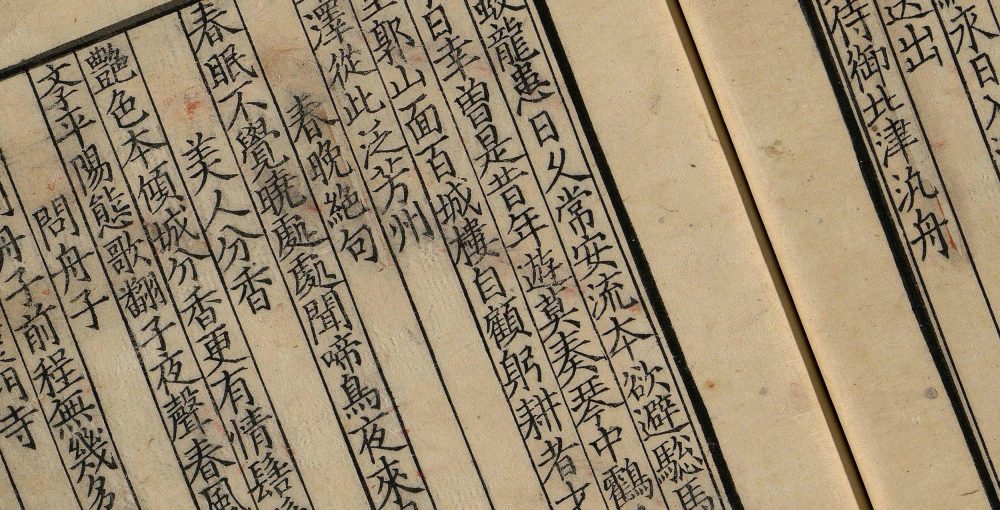 永日入
送出
待御北津汎舟
蛟龍患日久常安流本欲避驄馬
日幸曽是昔年遊莫奏琴中鶴
郭山面百城樓自顧躬耕者才
澤從此泛芳州
春晚絕句
春眠不覺曉處處聞啼鳥夜來
美人分香
艷色本傾城分香更有情髻
斈平陽態歌翻子夜聲春風
問舟子
舟子前程無幾多
寺